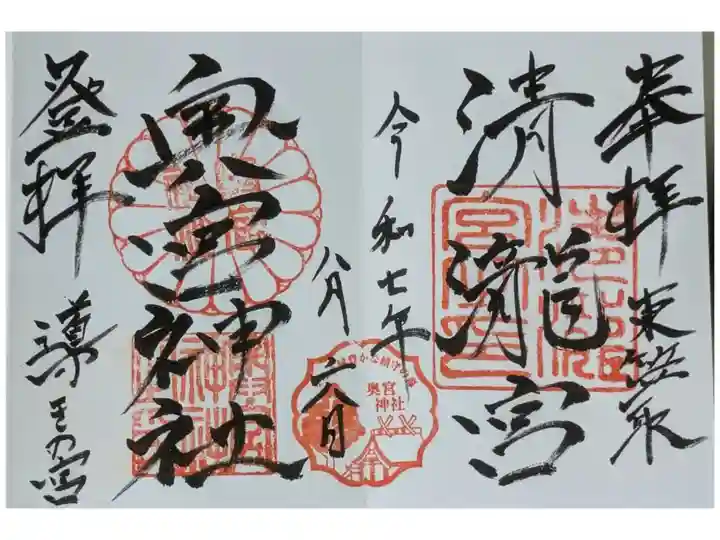 奉拝 東笠取
清瀧宮
令和七年
八月
六日
奥宮
神社
奥宮神社
登拝 導きの宮